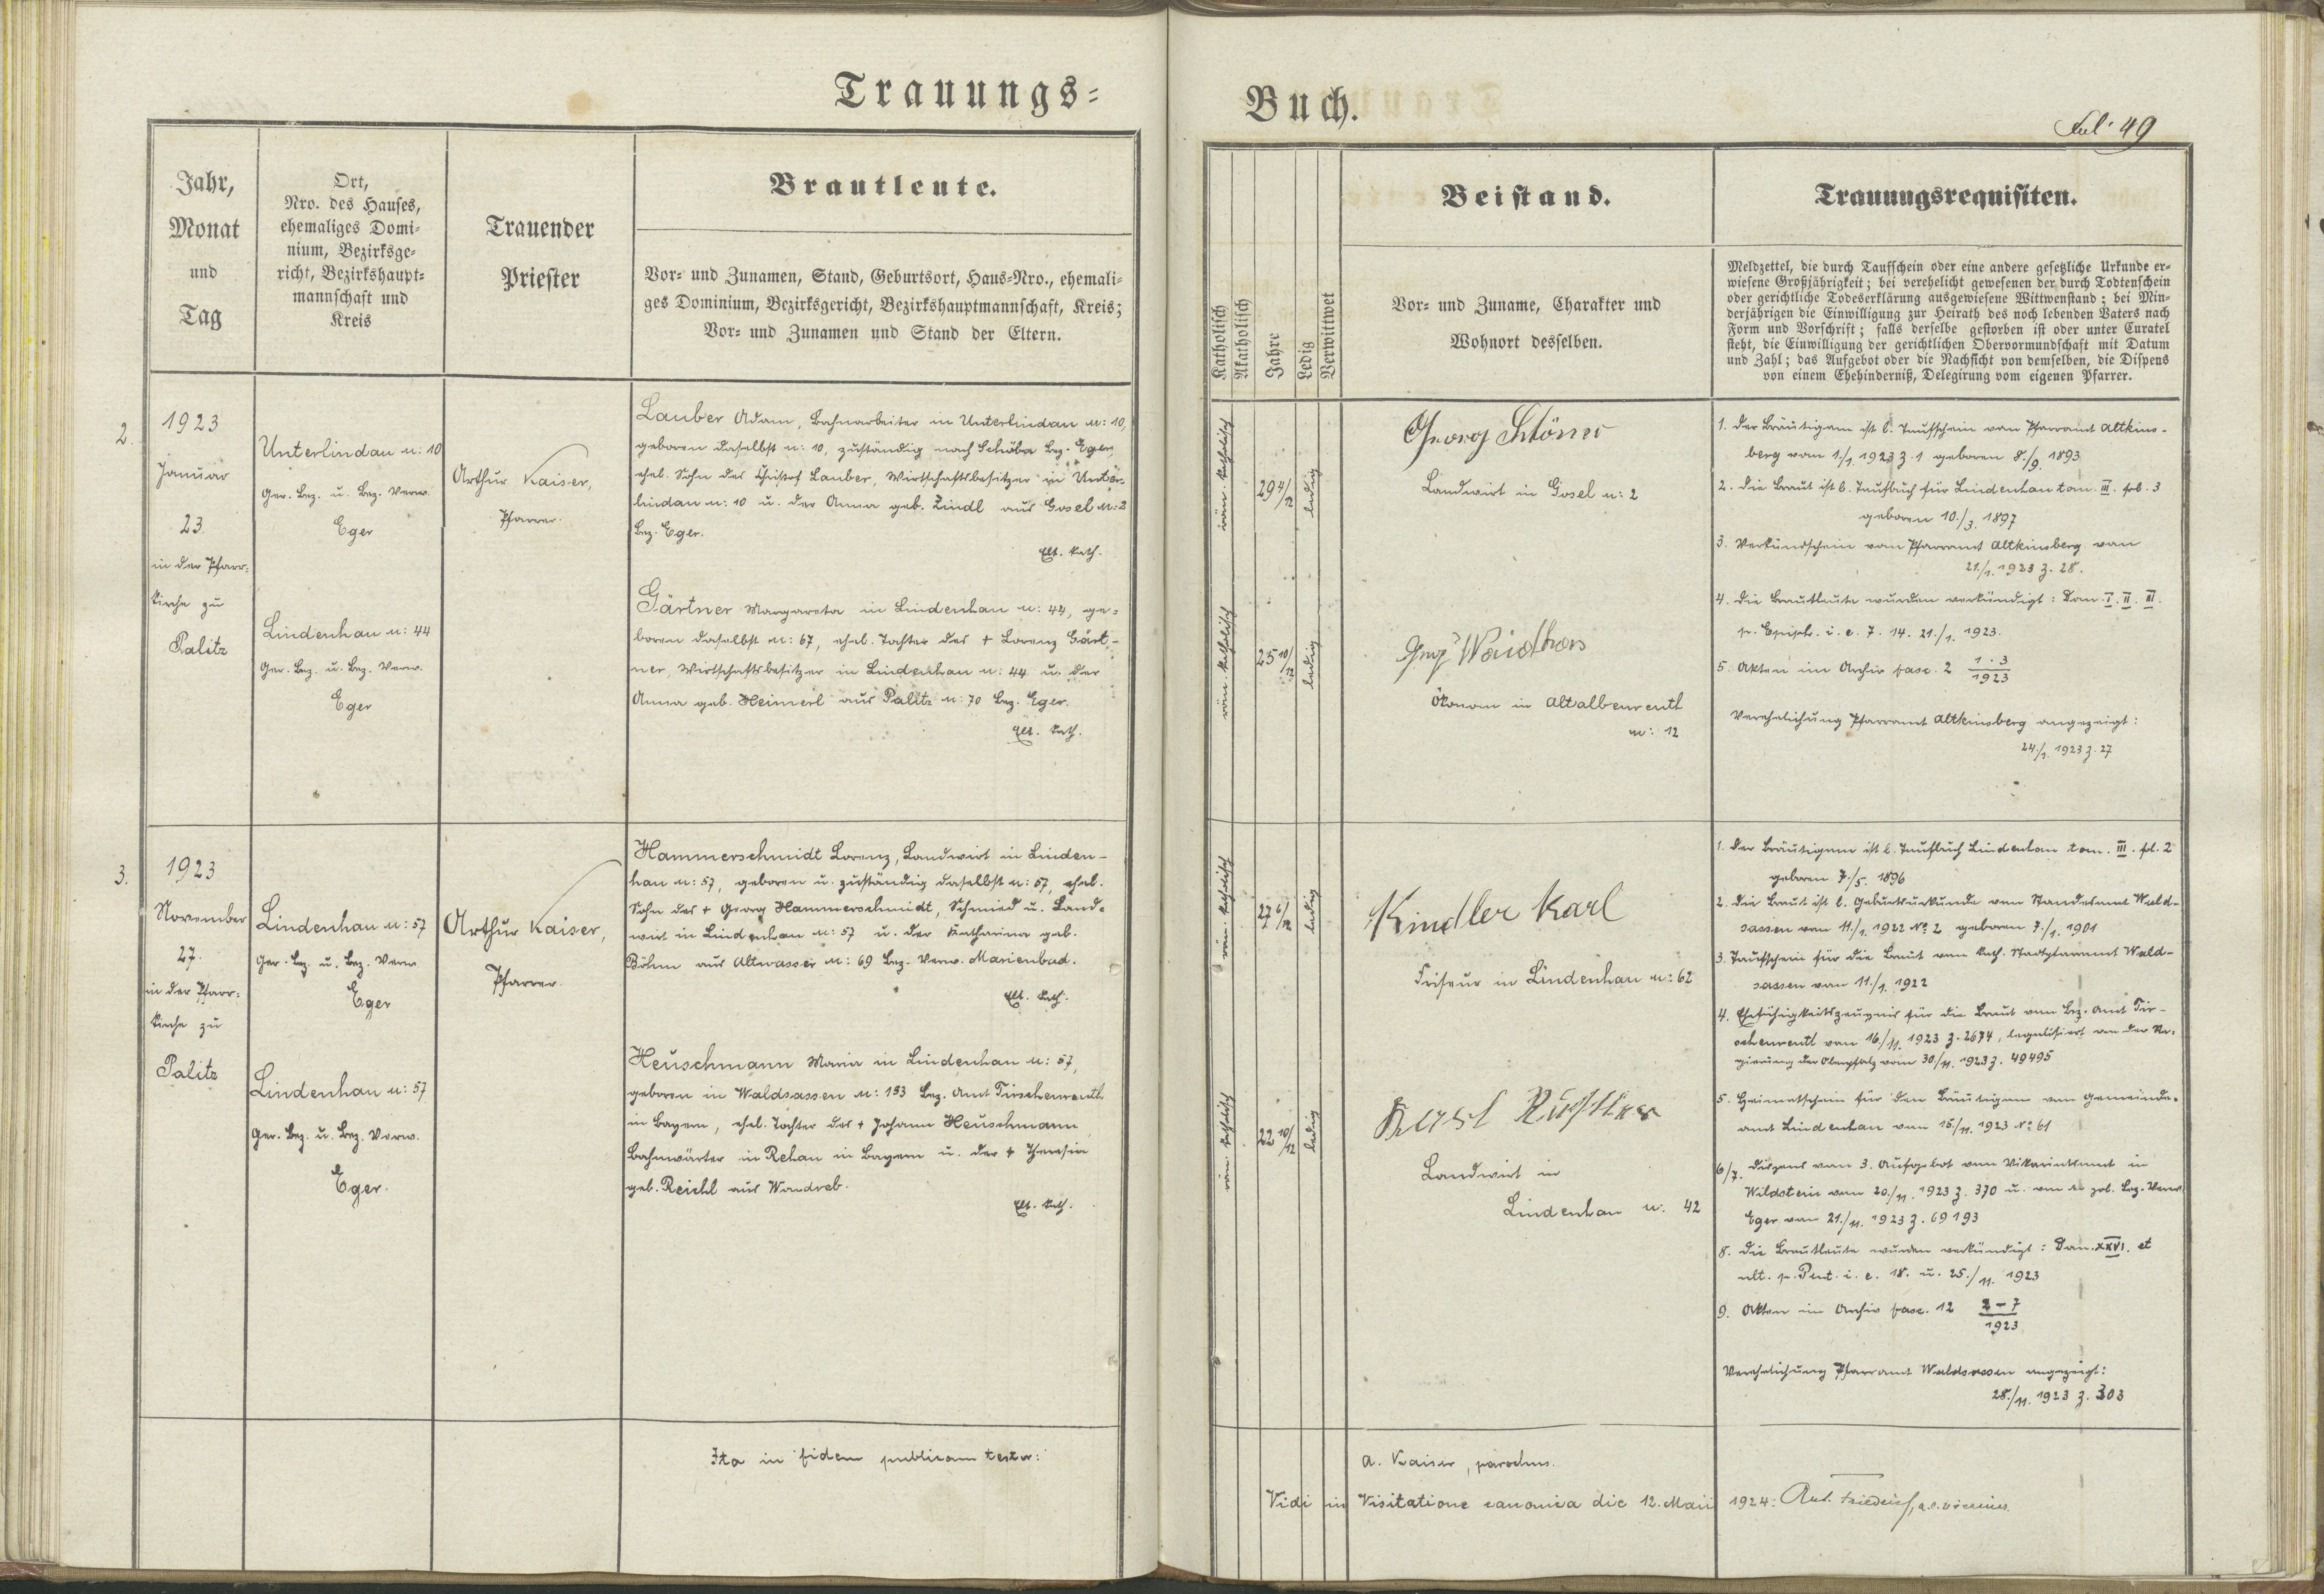 Trauungs=
Jahr,
Monat
und
Tag
Ort,
Nro. des Hauses,
ehemaliges Domi-
nium, Bezirksge-
richt, Bezirkshaupt-
mannschaft und
Kreis
Trauender
Priester
Brautleute.
Vor- und Zunamen, Stand, Geburtsort, Haus-Nro., ehemali-
ges Dominium, Bezirksgericht, Bezirkshauptmannschaft, Kreis;
Vor- und Zunamen und Stand der Eltern.
2.
1923
Januar
23.
in der Pfarr-
kirche zu
Palitz
Unterlindau n: 10
Ger. Bez. u. Bez. Verw.
Eger
Lindenhau n: 44
Ger. Bez. u. Bez. Verw.
Eger
Arthur Kaiser,
Pfarrer.
Lauber Adam, Bahnarbeiter in Unterlindau n: 10,
geboren daselbst n: 10, zuständig nach Schöba Bez. Eger,
ehel. Sohn des Christof Lauber, Wirtschaftsbesitzer in Unter-
lindau n: 10 u. der Anna geb. Zindl aus Gosel n: 2
Bez. Eger.
Elt. kath.
Gärtner Margareta in Lindenhau n: 44, ge-
boren daselbst n: 67, ehel. Tochter des + Lorenz Gärt-
ner, Wirtschaftsbesitzer in Lindenhau n: 44 u. der
Anna geb. Heimerl aus Palitz n: 70 Bez. Eger.
Elt. kath.
3.
1923
November
27.
in der Pfarr-
kirche zu
Palitz
Lindenhau n: 57
Ger. Bez. u. Bez. Verw.
Eger
Lindenhau n: 57
Ger. Bez. u. Bez. Verw.
Eger.
Arthur Kaiser,
Pfarrer.
Hammerschmidt Lorenz, Landwirt in Linden-
hau n: 57, geboren u. zuständig daselbst n: 57, ehel.
Sohn des + Georg Hammerschmidt, Schmied u. Land-
wirt in Lindenhau n: 57 u. der Katharina geb.
Böhm aus Altwasser n: 69 Bez. Verw. Marienbad.
Elt. kath.
Heuschmann Maria in Lindenhau n: 57,
geboren in Waldsassen n: 153 Bez. Amt Tirschenreuth
in Bayern, ehel. Tochter des + Johann Heuschmann
Bahnwärter in Rehau in Bayern u. der + Theresia
geb. Reichl aus Wondreb.
Elt. kath.
Ita in fidem publicam testor:
Buch.
Fol. 49
Katholisch
Akatholisch
Jahre
Ledig
Verwittwet
Beistand.
Vor- und Zuname, Charakter und
Wohnort desselben.
Trauungsrequisiten.
Meldzettel, die durch Taufschein oder eine andere gesetzliche Urkunde er-
wiesene Großjährigkeit; bei verehelicht gewesenen der durch Todtenschein
oder gerichtliche Todeserklärung ausgewiesene Wittwenstand; bei Min-
derjährigen die Einwilligung zur Heirath des noch lebenden Vaters nach
Form und Vorschrift; falls derselbe gestorben ist oder unter Curatel
steht, die Einwilligung der gerichtlichen Obervormundschaft mit Datum
und Zahl; das Aufgebot oder die Nachsicht von demselben, die Dispens
von einem Ehehinderniß, Delegirung vom eigenen Pfarrer.
röm. katholisch
29 4/12
ledig
Georg
Landwirt in Gosel n: 2
röm. katholisch
25 10/12
ledig
Waidhas
Ökonom in Altalbenreuth
n: 12
1. Der Bräutigam ist l. Taufschein vom Pfarramt Altkins-
berg vom 1./1. 1923 Z. 1 geboren 8./9. 1893
2. Die Braut ist l. Taufbuch für Lindenhau tom. III. fol. 3
geboren 10./3. 1897
3. Verkündschein vom Pfarramt Altkinsberg vom
21./1. 1923 Z. 28.
4. Die Brautleute wurden verkündigt: Dom. I. II. III.
p. Epiph. i. e. 7. 14. 21./1. 1923.
5. Akten im Archiv fasc. 2 1. 3
1923
Verehelichung Pfarramt Altkinsberg angezeigt:
24./1. 1923 Z. 27
röm. katholisch
27 6/12
ledig
Kindler Karl
Friseur in Lindenhau n: 62
röm. katholisch
22 10/12
ledig
Landwirt in
Lindenhau n: 42
1. Der Bräutigam ist l. Taufbuch Lindenhau tom. III. fol. 2
geboren 7./5. 1896
2. Die Braut ist l. Geburtsurkunde vom Standesamt Wald-
sassen vom 11./1. 1922 No 2 geboren 7./1. 1901
3. Taufschein für die Braut vom kath. Stadtpfarramt Wald-
sassen vom 11./1. 1922
4. Ehefähigkeitszeugnis für die Braut vom Bez. Amt Tir-
schenreuth vom 16./11. 1923 Z. 2674, legalisiert von der Re-
gierung der Oberpfalz vom 30./11. 1923 Z. 49495
5. Heimatschein für den Bräutigam vom Gemeinde-
amt Lindenhau vom 15./11. 1923 No 61
6/7. Dispens vom 3. Aufgebot vom Vikariatsamt in
Wildstein vom 20./11. 1923 Z. 370 u. von der pol. Bez. Verw.
Eger vom 21./11. 1923 Z. 69193
8. Die Brautleute wurden verkündigt: Dom. XXVI. et
ult. p. Pent. i. e. 18. u. 25./11. 1923
9. Akten im Archiv fasc. 12 2-7
1923
Verehelichung Pfarramt Waldsassen angezeigt:
28./11. 1923 Z. 303
A. Kaiser, parochus.
Vidi in Visitatione canonica die 12. Maii 1924: Ant. Friedrich,